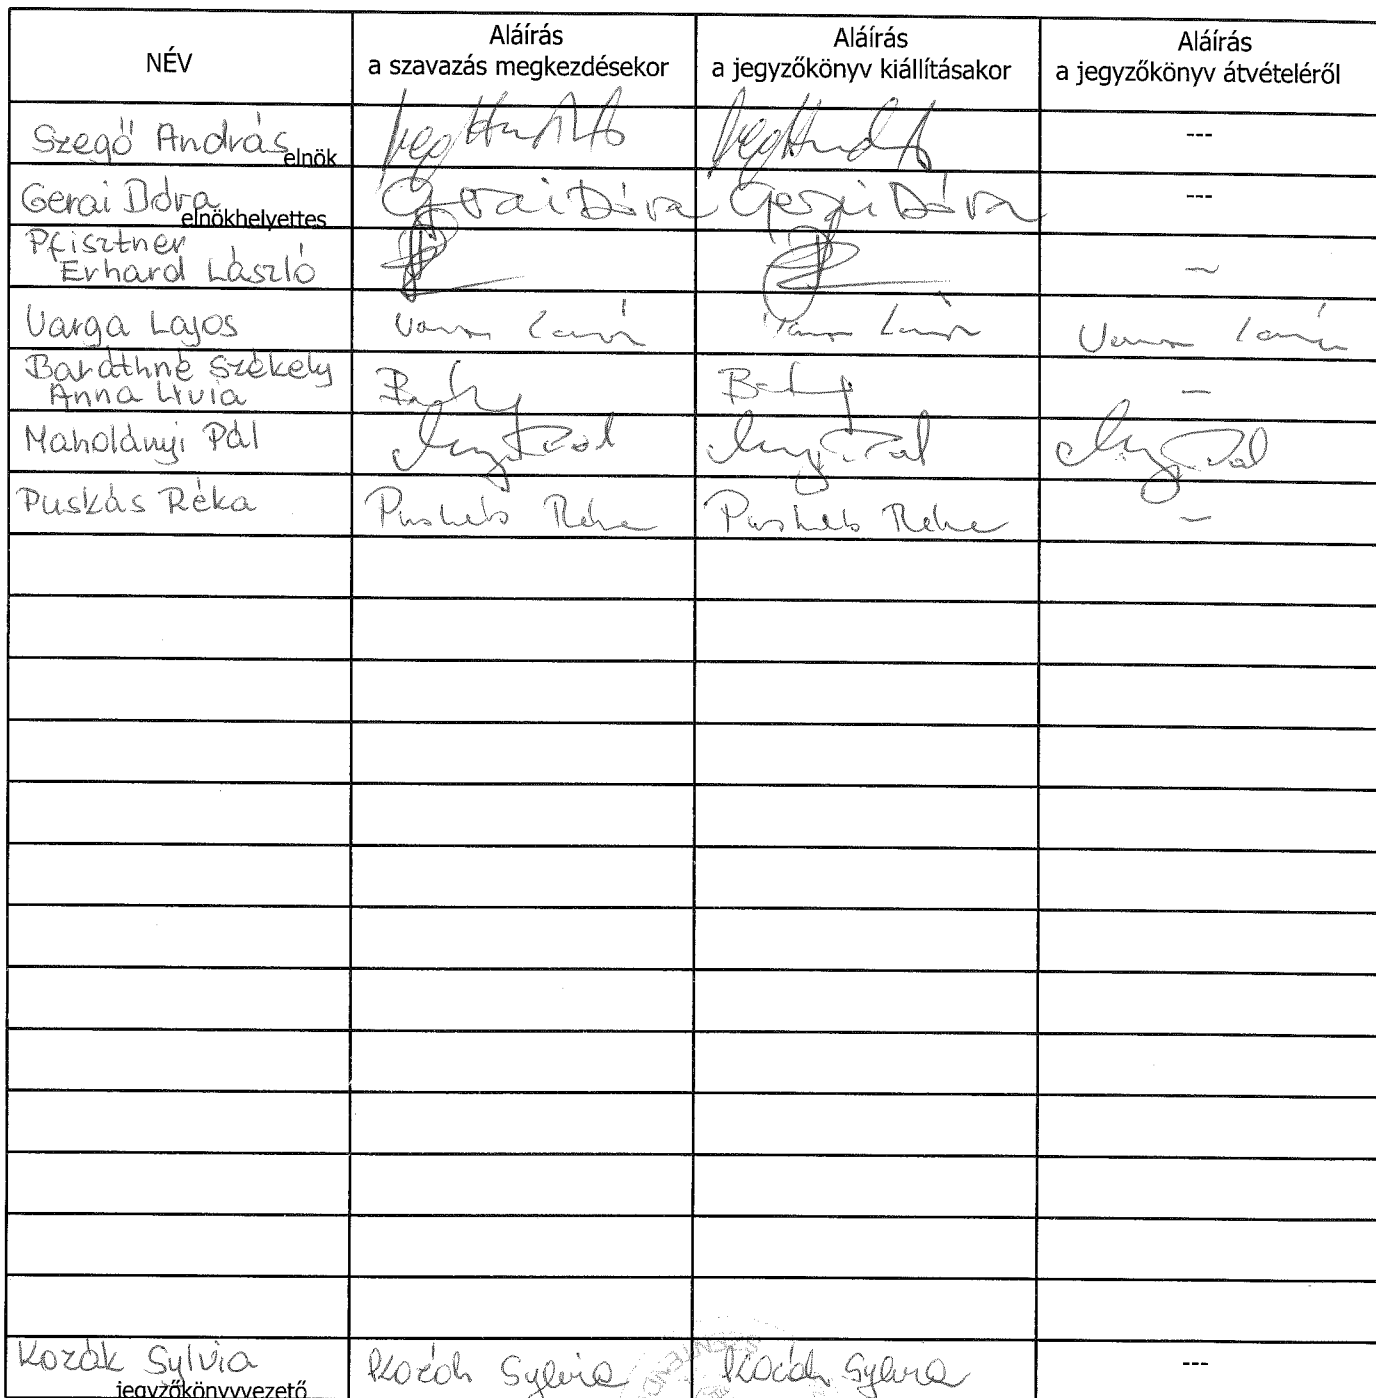 NÉV
Aláírás
a szavazás megkezdésekor
Aláírás
a jegyzőkönyv kiállításakor
Aláírás
a jegyzőkönyv átvételéről
Szegő András
elnök
---
Gerai Dóra
elnökhelyettes
Gerai Dóra
Gerai Dóra
---
Pfisztner
Erhard László
Varga Lajos
Baráthné Székely
Anna Lívia
—
Maholányi Pál
Pál
Pál
Pál
Puskás Réka
Puskás Réka
Puskás Réka
Kozák Sylvia
jegyzőkönyvvezető
Kozák Sylvia
Kozák Sylvia
---